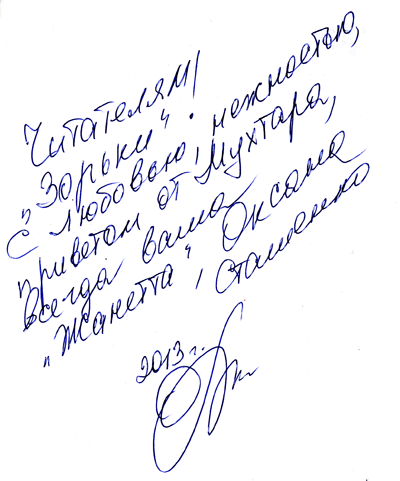 Читателям
"Зорьки".
С любовью, нежностью,
приветом от Мухтара,
всегда ваша
"Жанетта", Оксана
Сташенко
2013 г.